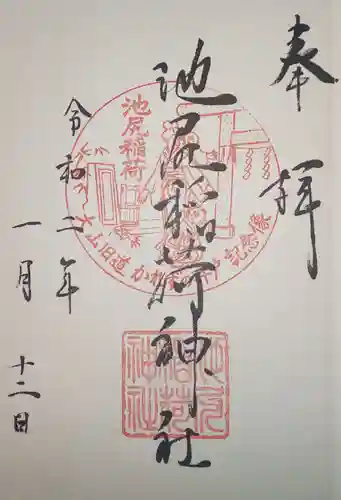 奉拝
池尻稲荷神社
令和二年
一月十二日
池尻稲荷
大山旧道
記念像
池尻稲荷神社